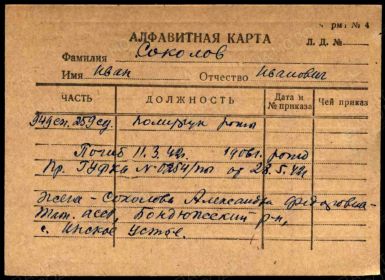 Форма № 4
АЛФАВИТНАЯ КАРТА
Л. Д. №
Фамилия Соколов
Имя Иван Отчество Иванович
ЧАСТЬ ДОЛЖНОСТЬ Дата и № приказа Чей приказ
949 сп. 259 сд. Политрук роты
Погиб 11.3.42г. 1906г. рожд
Пр. ГУФКА № 0254/п от 28.5.42г
Жена - Соколова Александра
Тат. асср, Бондюжский р-н,
с. Икское Устье.